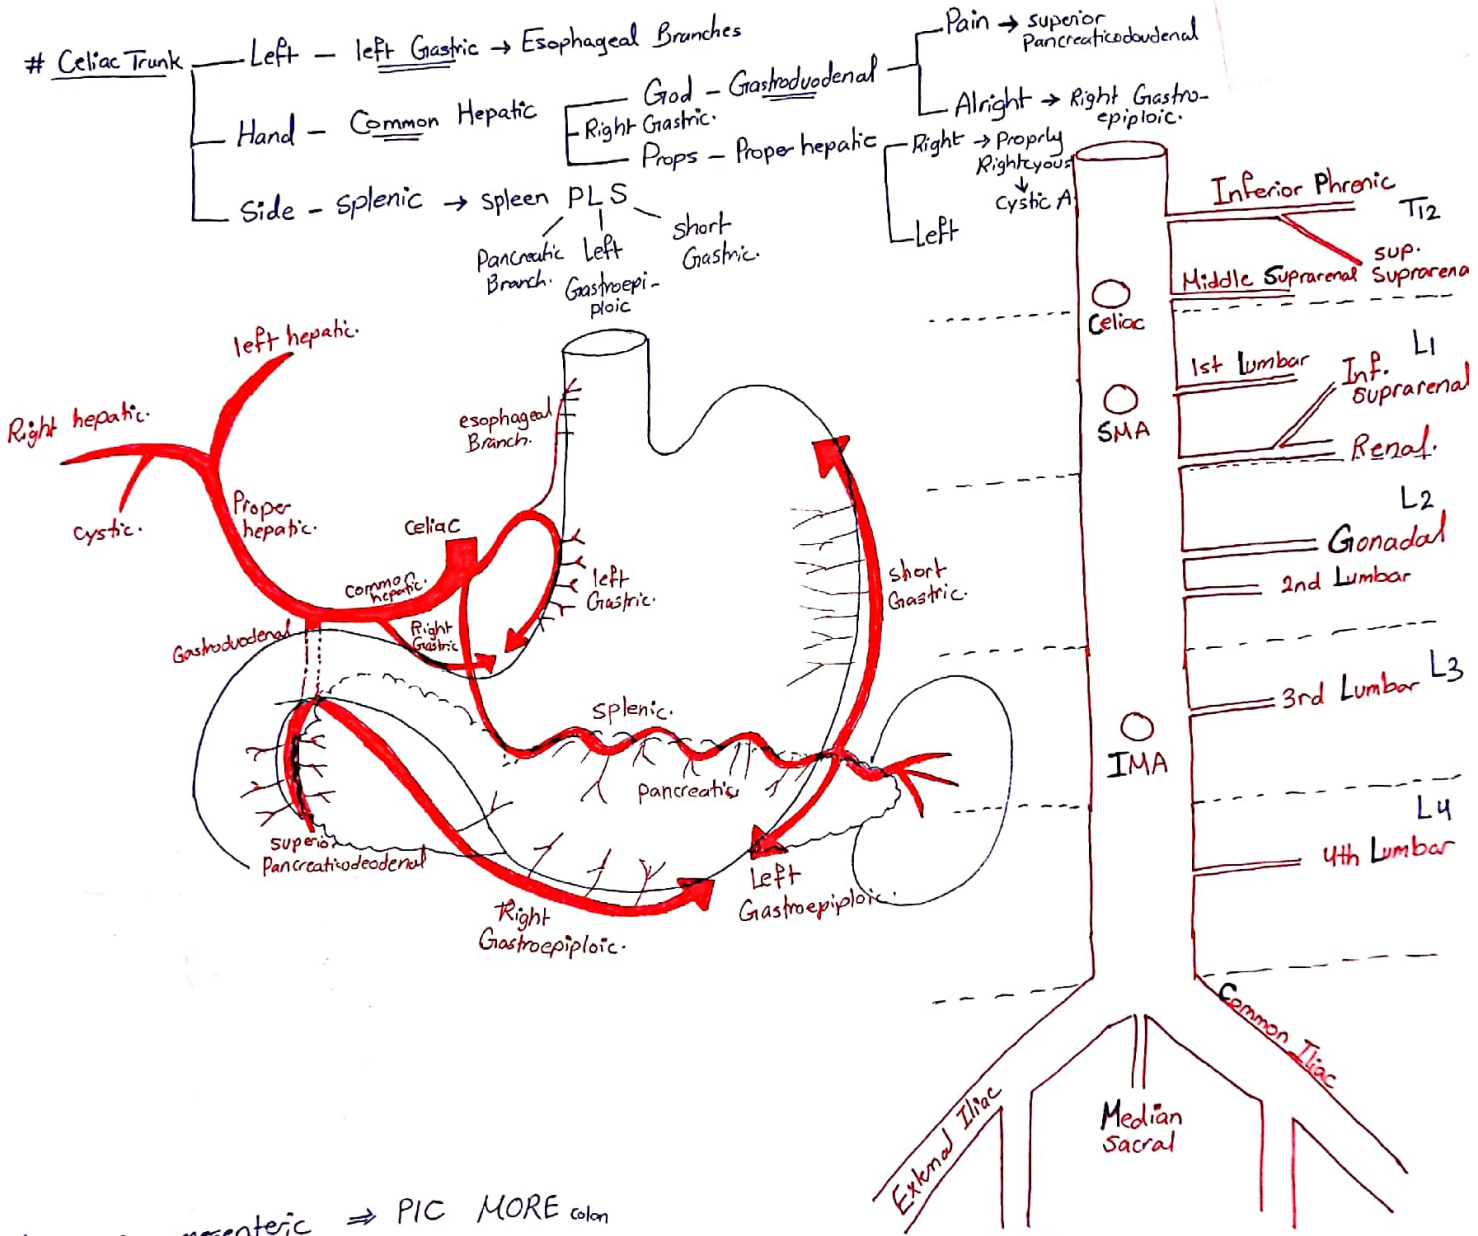 # Celiac Trunk
Left – left Gastric → Esophageal Branches
Hand – Common Hepatic
God – Gastroduodenal
Right Gastric.
Props – Proper hepatic
Pain → superior
Pancreaticodoudenal
Alright → Right Gastro-
epiploic.
Right → Proprly
Rightcyous
↓
Cystic A
Left
Side – splenic → spleen PLS
Pancreatic
Branch.
Left
Gastroepi-
ploic
short
Gastric.
left hepatic.
Right hepatic.
cystic.
Proper
hepatic.
celiac
common
hepatic.
Gastroduodenal
Right
Gastric
esophageal
Branch.
left
Gastric.
short
Gastric.
splenic.
Pancreatic
superior
Pancreaticodeodenal
Right
Gastroepiploic.
Left
Gastroepiploic.
Inferior Phrenic
T12
sup.
Suprarena
Middle Suprarenal
Celiac
L1
1st Lumbar
Inf.
Suprarenal
SMA
Renal.
L2
Gonadal
2nd Lumbar
L3
3rd Lumbar
IMA
L4
4th Lumbar
Common Iliac
External Iliac
Median
sacral
mesenteric ⇒ PIC MORE colon